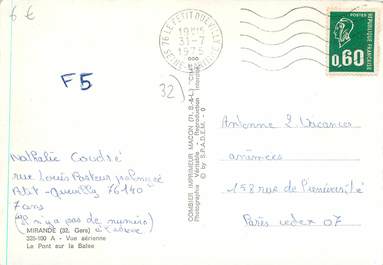 6 €
F5
32)
76 LE PETIT QUEVILLY
19H15
1975
POSTES
0,60
REPUBLIQUE FRANÇAISE
COMBIER IMPRIMEUR MACON (71, S.-&-L.) "CIM"
Photographie Véritable - Reproduction Interdite
© by S.P.A.D.E.M. - 0
Antenne 2 Vacances
animées
158 rue de l'université
Paris cedex 07
Nathalie Coudré
rue Louis Pasteur prolongée
Petit-Quevilly 76140
7 ans
(il n'y a pas de numéro)
MIRANDE (32, Gers)
325-100 A - Vue aérienne
Le Pont sur la Baïse